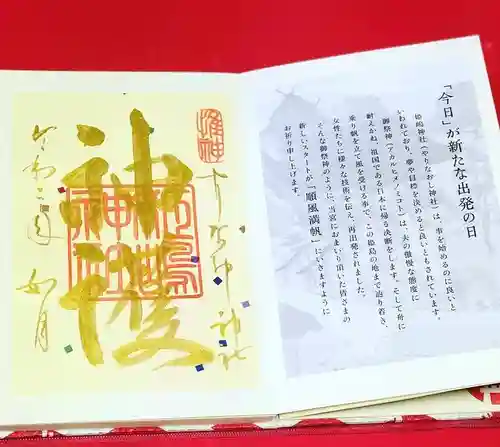 「今日」が新たな出発の日
姫嶋神社(やりなおし神社)は、事を始めるのに良いと
いわれており、夢や目標を決めると良いともされています。
御祭神(アカルヒメノミコト)は、夫の傲慢な態度に
耐えかね、祖国である日本に帰る決断をします。そして舟に
乗り帆を立て風を受ける事で、この姫島の地まで辿り着き、
女性たちに様々な技術を伝え、再出発されました。
そんな御祭神のように、当宮におまいり頂いた皆さまの
新しいスタートが「順風満帆」にいきますように
お祈り申し上げます。
惟神
神社
神
令和二年 如月